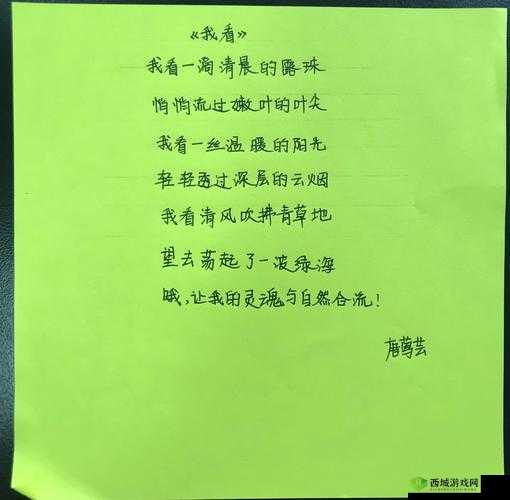 《我看》
我看一滴清晨的露珠
悄悄流过嫩叶的叶尖
我看一丝温暖的阳光
轻轻透过深层的云烟
我看清风吹拂青草地
望去荡起了一波绿海
哦,让我的灵魂与自然合流!
唐莺芸
西城游戏网